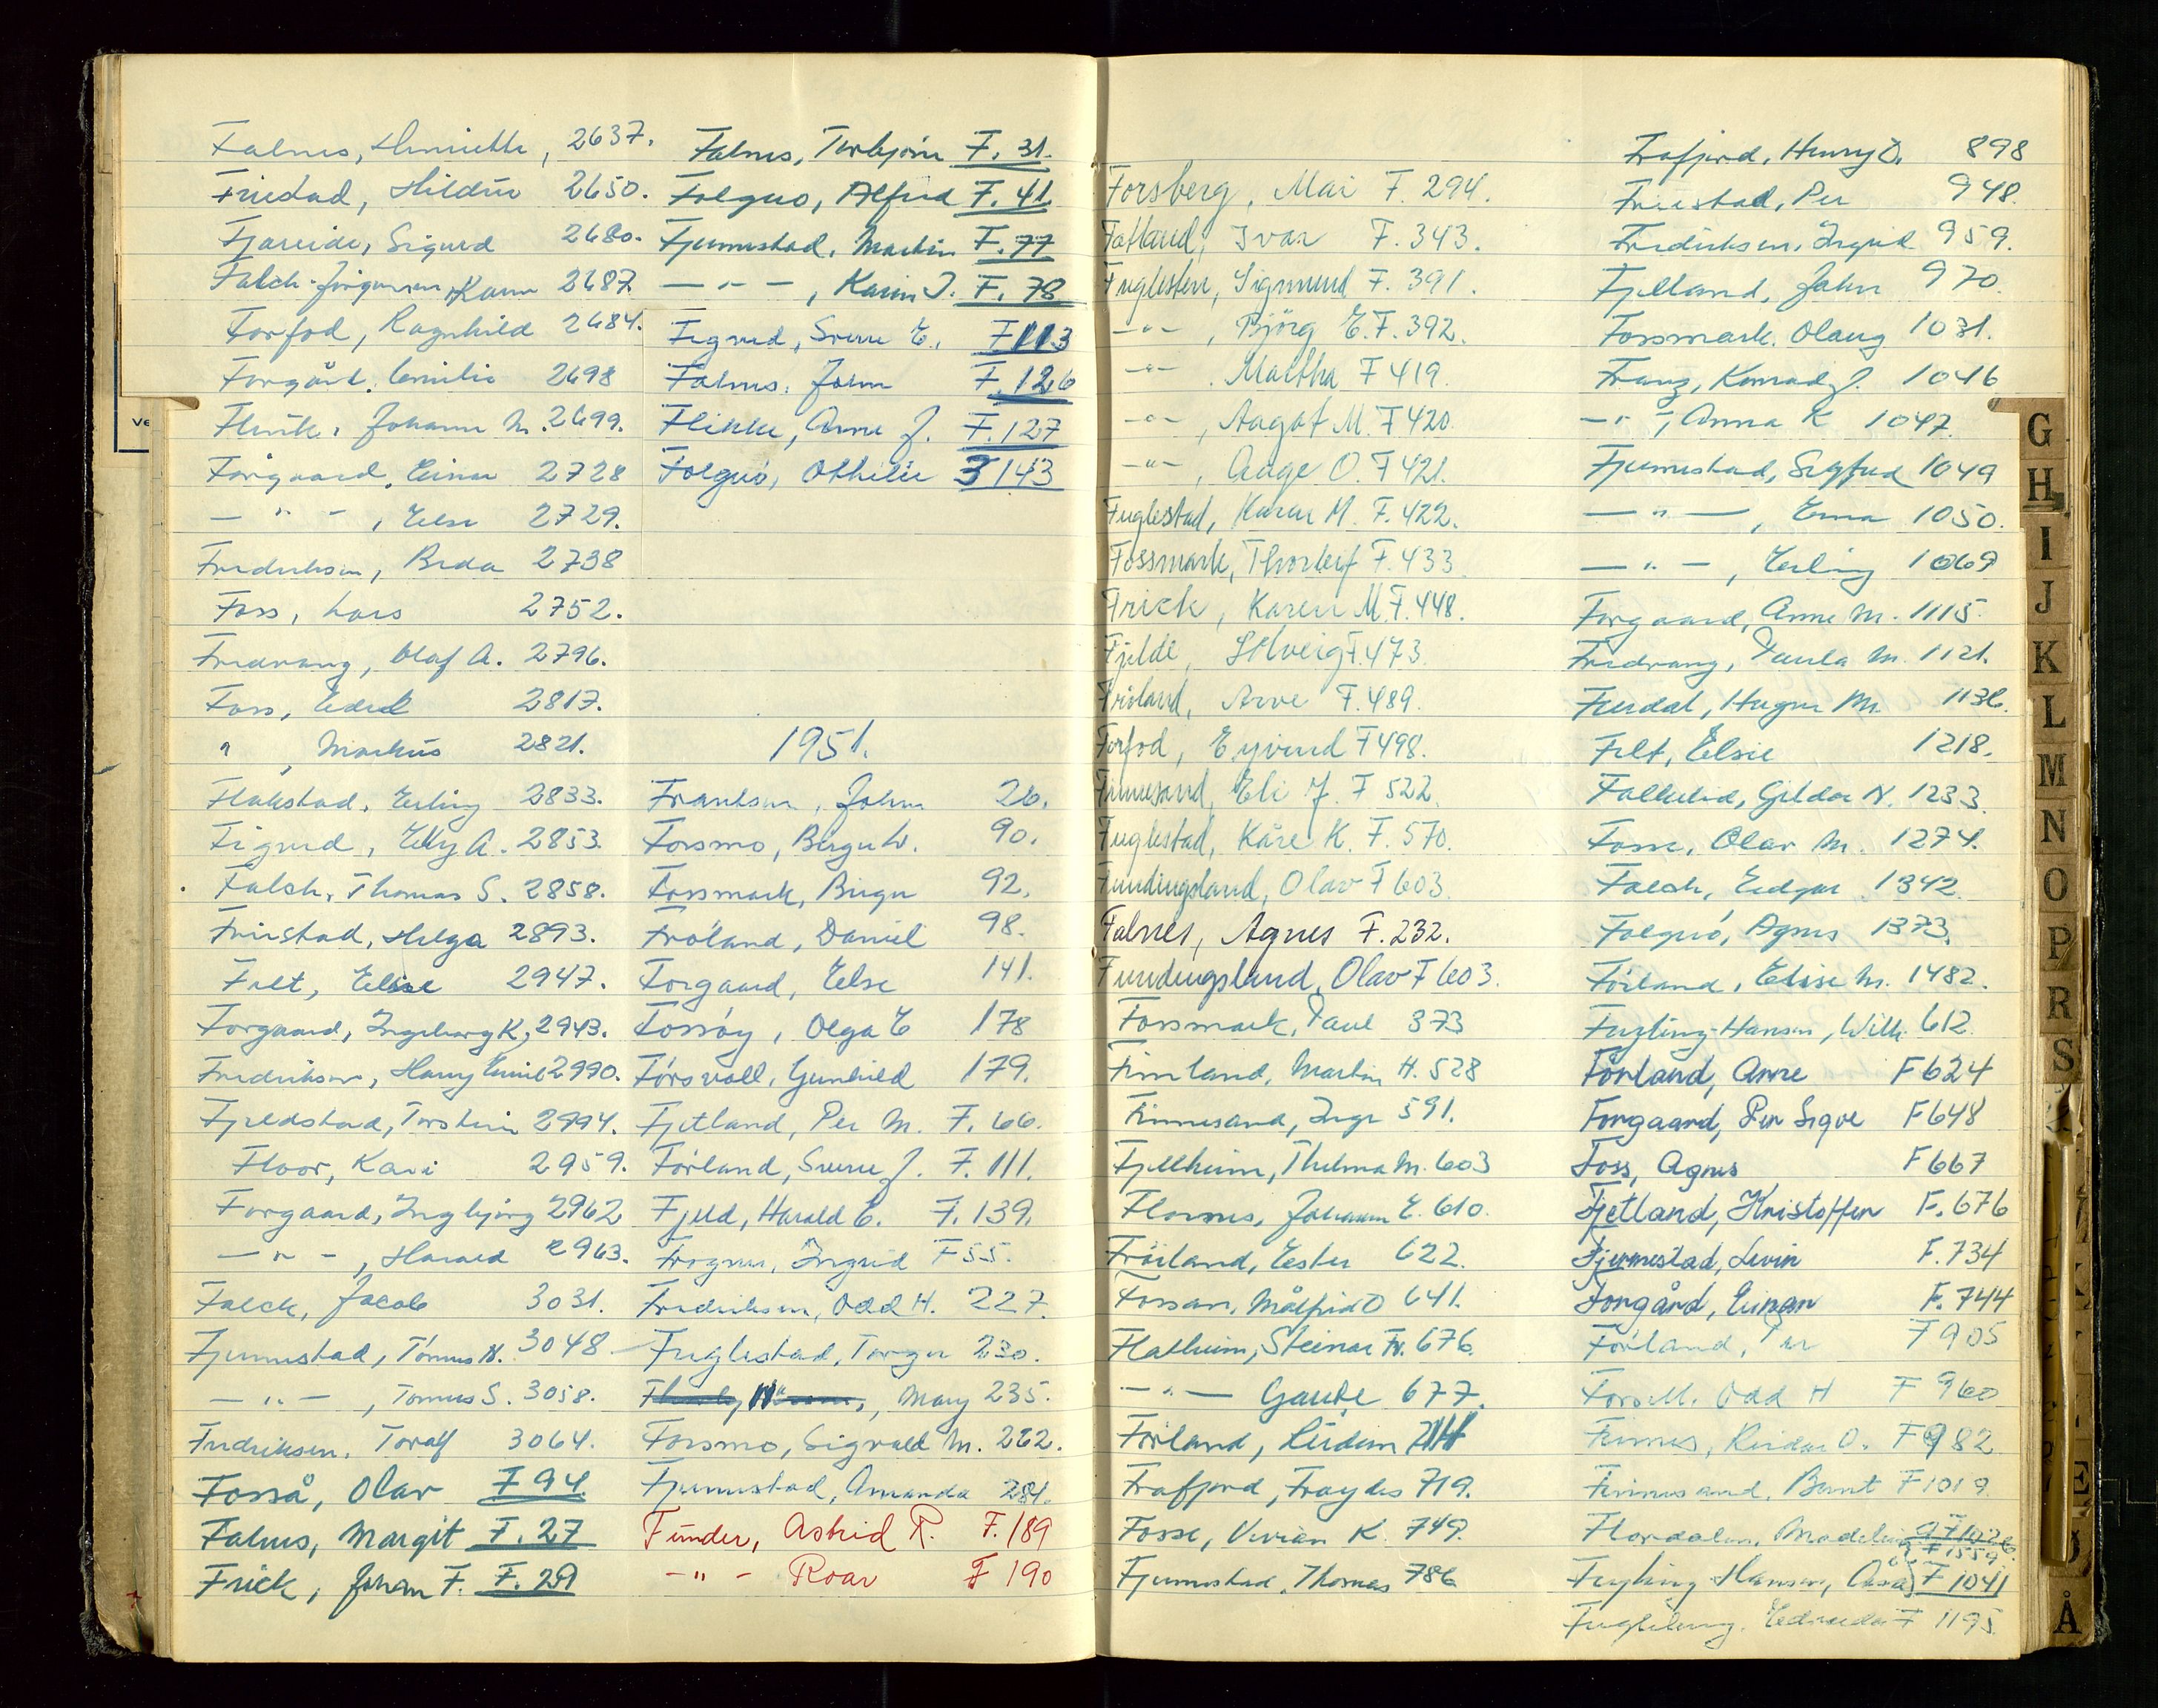 Falnes, Henriette, 2637.
Friestad, Hildur 2650.
Fjareide, Sigurd 2680.
Falch-Jörgensen, Karen 2687
Forfod, Ragnhild 2684.
Forgård, Emilie 2698
Flink, Johanne M. 2699.
Forgaard, Einar 2728
— " — , Else 2729.
Fredriksen, Beda 2738
Foss, Lars 2752.
Fredvang, Olaf A. 2796.
Foss, Edel 2817.
" , Markus 2821.
Flakstad, Erling 2833.
Figved, Elly A. 2853.
Falch, Thomas S. 2858.
Friestad, Helga 2893.
Felt, Elsie 2947.
Forgaard, Ingeborg K, 2943.
Fredriksen, Harry Emil 2990.
Fjeldstad, Torstein 2994.
Floor, Kari 2959.
Forgaard, Ingbjörg 2962
— " — , Harald 2963.
Falck, Jacob 3031.
Fjermestad, Tönnes N. 3048
— " — , Tönnes S. 3058.
Fredriksen, Toralf 3064.
Fosså, Olav F 94
Falnes, Margit F. 27
Frick, Johan F. F. 29
Falnes, Torbjörn F. 31.
Folgerö, Alfred F. 41
Fjermestad, Martin F. 77
— " — , Karin J. F. 78
Figved, Sverre E., F 113
Falnes, John F. 126
Flikke, Arne J. F. 127
Folgerö, Othilie 3 143
1951.
Frantsen, John 26.
Forsmo, Birger W. 90.
Fossmark, Birger 92.
Fröland, Daniel 98.
Forgaard, Else 141.
Fossöy, Olga E 178
Försvoll, Gunhild 179.
Fjetland, Per M. F. 66.
Förland, Sverre J. F. 111.
Fjeld, Harald E. F. 139.
Frogner, Ingrid F 55.
Fredriksen, Odd H. 227.
Fuglestad, Torger 230.
, Mary 235.
Forsmo, Sigvald M. 262.
Fjermestad, Amanda 281.
Funder, Astrid R. F. 189
— " — Roar F 190
Forsberg, Mai F. 294.
Fatland, Ivar F. 343.
Fuglesten, Sigmund F. 391.
— " — , Björg E. F. 392.
— " — , Martha F 419.
— " — , Aagot M. F 420.
— " — , Aage O. F 421.
Fuglestad, Karen M. F. 422.
Fossmark, Thorleif F. 433
Frick, Karen M. F. 448.
Fjelde, Solveig F. 473.
Friland, Arve F. 489.
Forfod, Eyvind F 498.
Finnesand, Eli J. F 522.
Fuglestad, Kåre K. F. 570.
Fundingsland, Olav F 603.
Falnes, Agnes F. 232.
Fundingsland, Olav F 603.
Fossmark, Paul 373
Finnland, Martin H. 528
Finnesand, Inge 591.
Fjellheim, Thelma M. 603
Flornes, Johannes E. 610.
Fröiland, Ester 622.
Fossan, Målfrid O 641.
Flatheim, Steinar Fr. 676.
— " — Gaute 677.
Förland, Reidun 714
Frafjord, Frøydis 719.
Fosse, Vivian K. 749.
Fjermestad, Thomas 786
Frafjord, Henry O. 898
Friestad, Per 948.
Fredriksen, Ingrid 959.
Fjelland, John 970.
Fossmark, Olaug 1031.
Franz, Konrad J. 1046
— " — , Anna K 1047.
Fjermestad, Sigfred 1049
— " — , Erna 1050.
— " — , Erling 1069
Forgaard, Anne M. 1115.
Fredvang, Paula M. 1121.
Furdal, Hugin M. 1136.
Felt, Elsie 1218.
Falkeid, Gilda N. 1233.
Fosse, Olav M. 1274.
Falch, Edgar 1342
Folgerö, Agnes 1373.
Förland, Elise M. 1482.
Fugling-Hansen, Wilh. 612.
Förland, Arne F 624
Forgaard, Per Sigve F 648
Foss, Agnes F 667
Fjetland, Kristoffer F. 676
Fjermestad, Levin F. 734
Forgård, Einar F. 744
Förland, Per F 905
Forsell, Odd H F 960
Finnes, Reidar O. F 982
Finnesand, Bernt F 1019.
Flordalen, Madeleine F 1026.
F 1559.
Fuglling Hansen, Aase F 1041
Fugleberg, Edvarda F 1195
G
H
I
J
K
L
M
N
O
P
R
S
Å